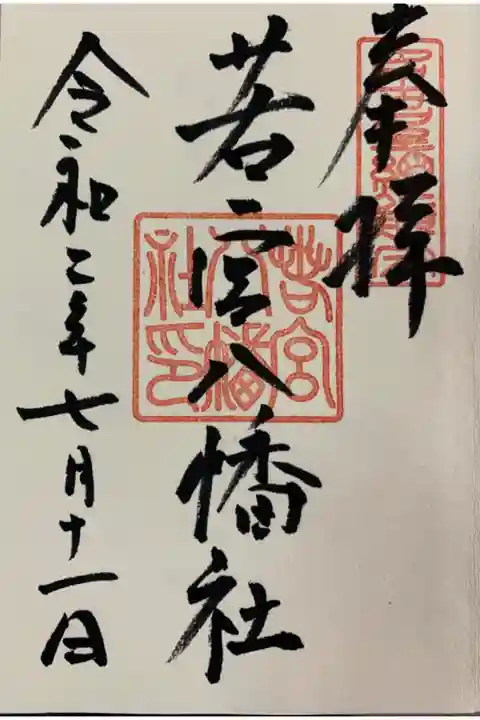 奉拝
若宮八幡社
若宮
八幡
社印
令和二年七月十一日